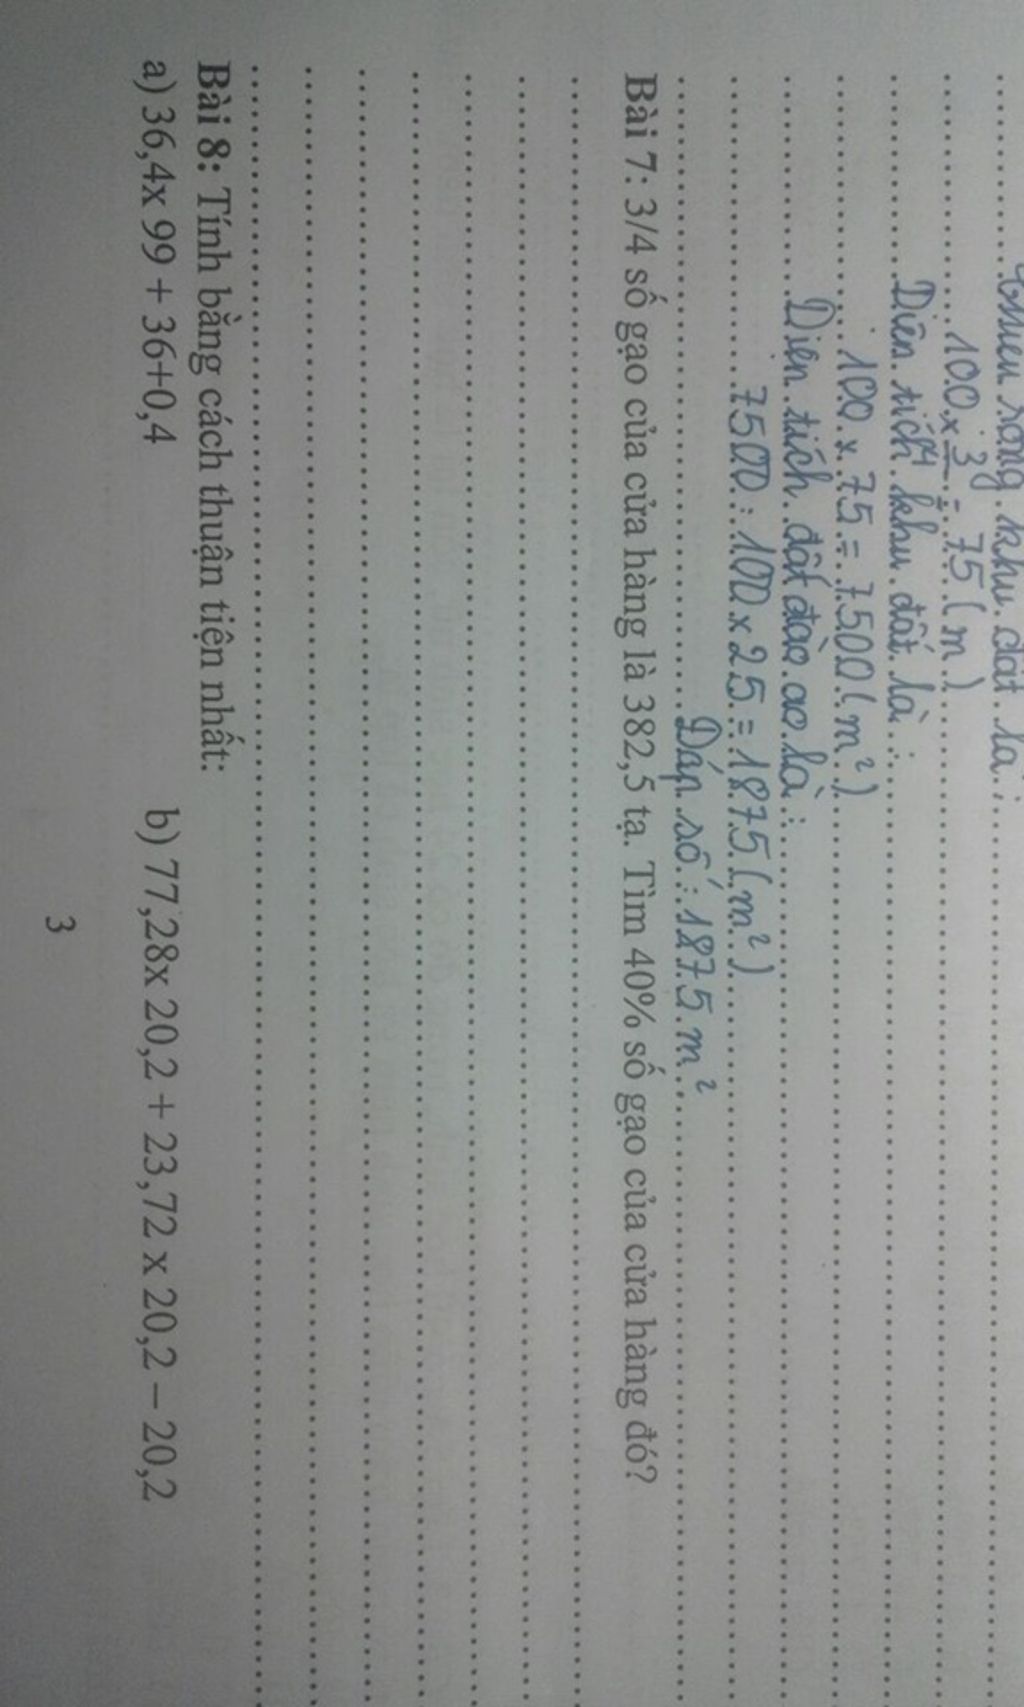 Chiều rộng khu đất là :
100 x 3/4 = 75 (m)
Diện tích khu đất là :
100 x 75 = 7500 (m²)
Diện tích đất đào ao là :
7500 : 100 x 25 = 1875 (m²)
Đáp số : 1875 m²
Bài 7: 3/4 số gạo của cửa hàng là 382,5 tạ. Tìm 40% số gạo của cửa hàng đó?
Bài 8: Tính bằng cách thuận tiện nhất:
a) 36,4x 99 + 36+0,4 b) 77,28x 20,2 + 23,72 x 20,2 – 20,2
3